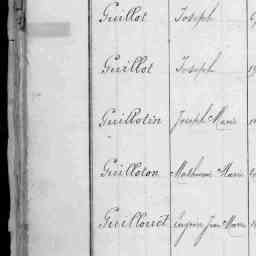 Guillot Joseph
Guillot Joseph
Guillotin Joseph Marie
Guilloton Mathurin Marie
Guillouet Jean Marie